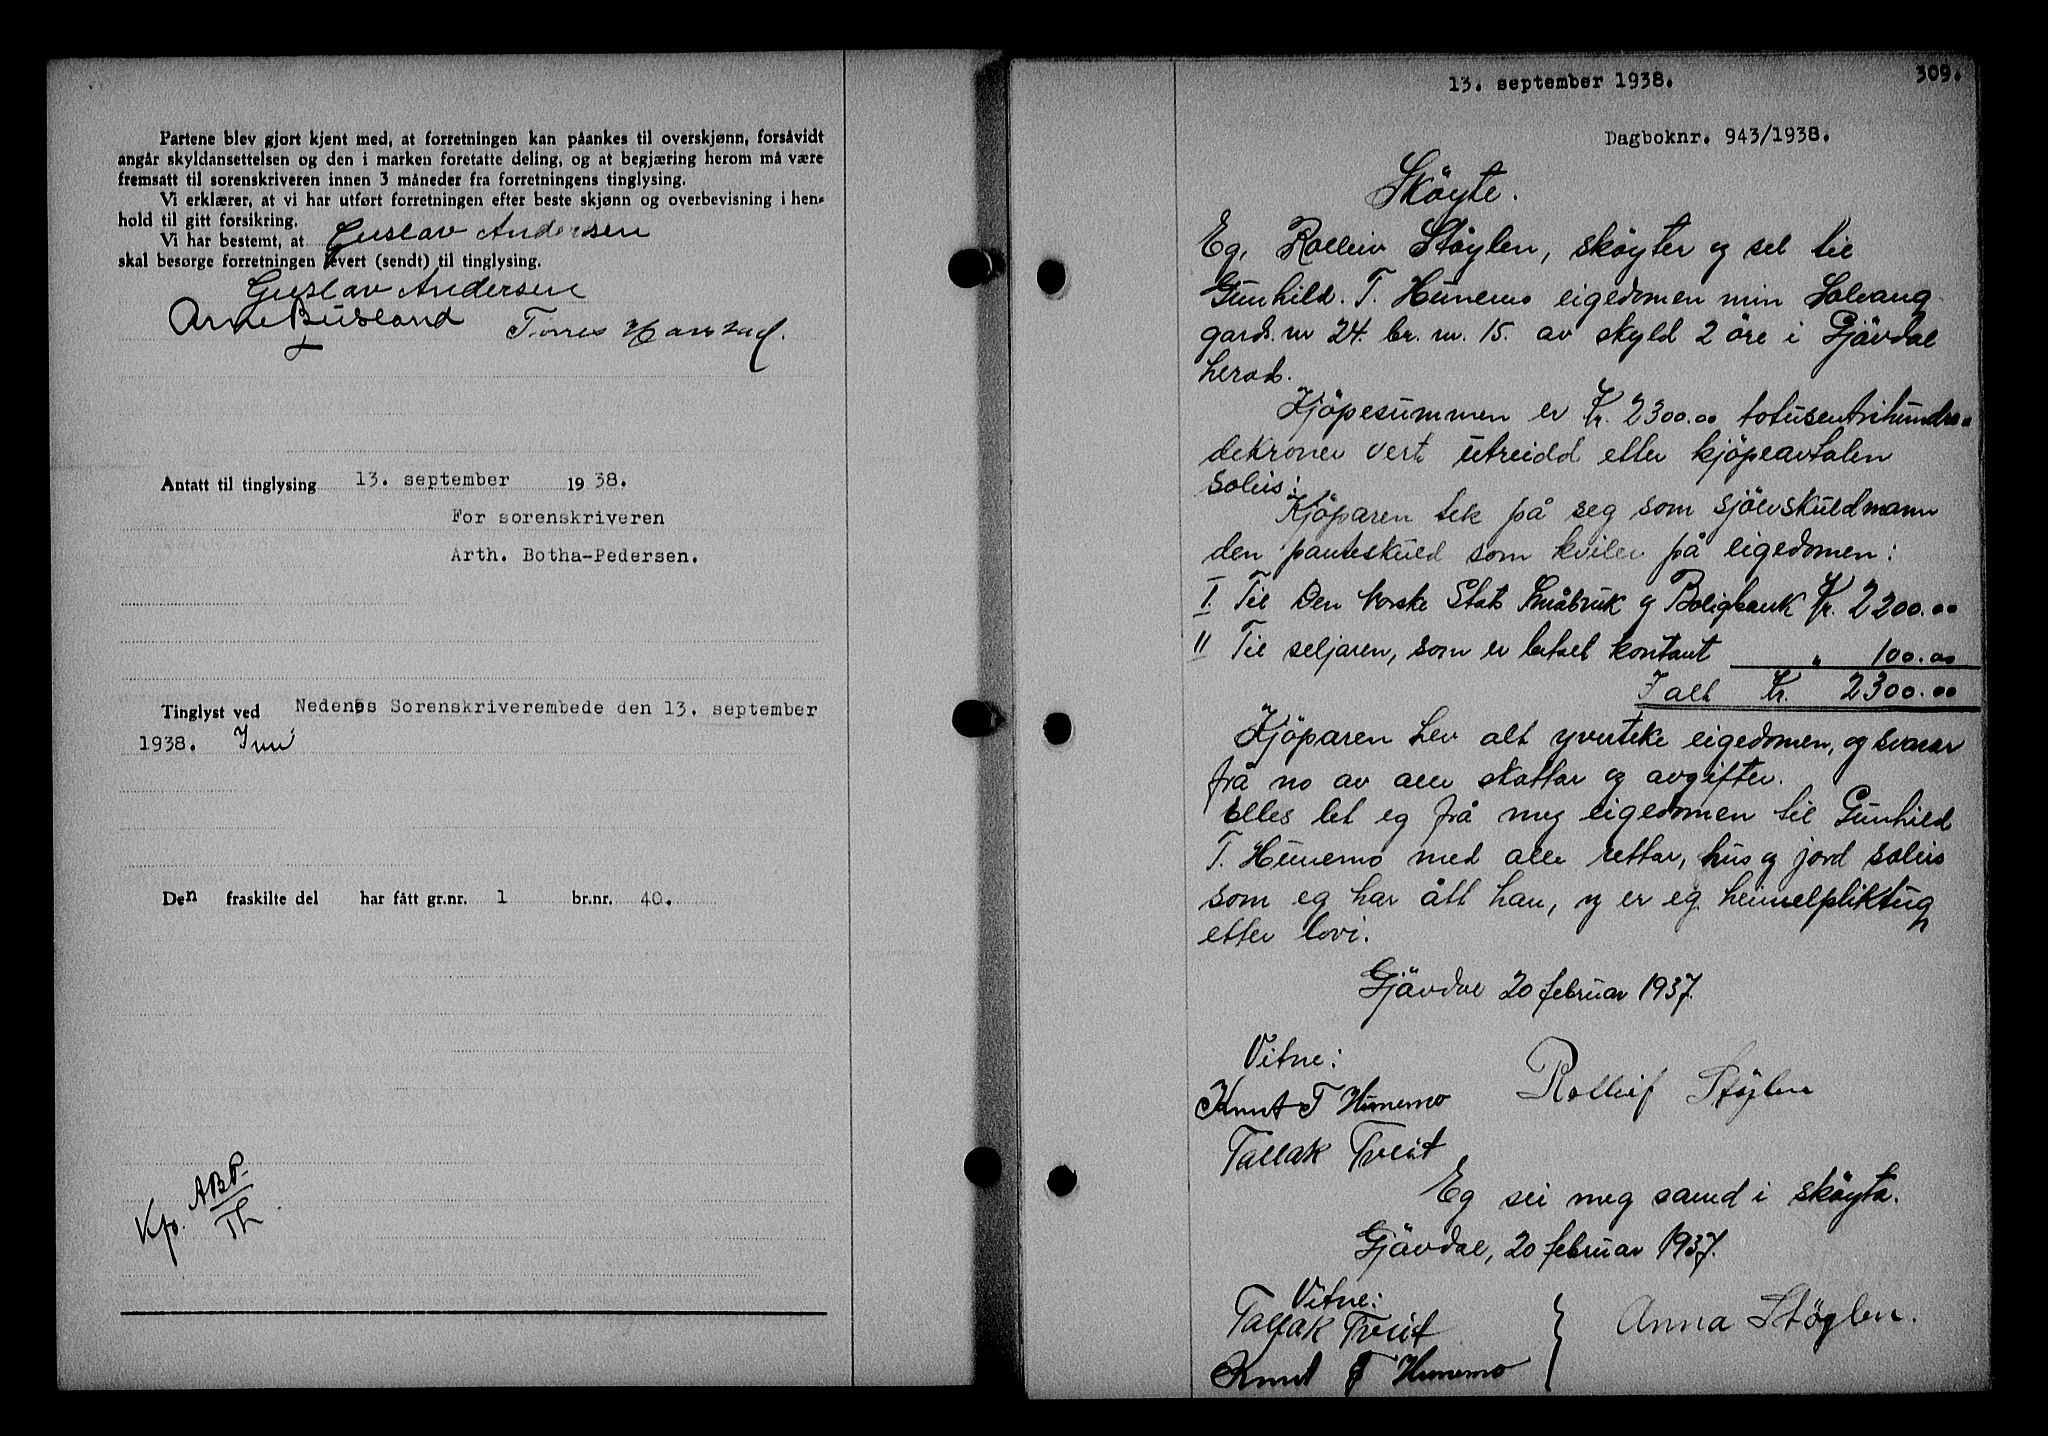 Partene blev gjort kjent med, at forretningen kan påankes til overskjønn, forsåvidt
angår skyldansettelsen og den i marken foretatte deling, og at begjæring herom må være
fremsatt til sorenskriveren innen 3 måneder fra forretningens tinglysing.
Vi erklærer, at vi har utført forretningen efter beste skjønn og overbevisning i hen-
hold til gitt forsikring.
Vi har bestemt, at Gustav Andersen
skal besørge forretningen levert (sendt) til tinglysing.
Gustav Andersen
Arne Busland
Antatt til tinglysing 13. september 1938.
For sorenskriveren
Arth. Botha-Pedersen.
Tinglyst ved Nedenes Sorenskriverembede den 13. september
1938.
Den fraskilte del har fått gr.nr. 1 br.nr. 40.
ABP
Kfr. Th
309.
13. september 1938.
Dagboknr. 943/1938.
Skøyte.
Eg, Rolleiv Støylen, skøyter og sel til
Gunhild. T. Hunemo eigedomen min Solvang
gards. nr 24. br. nr. 15. av skyld 2 öre i Gjövdal
herad.
Kjöpesummen er Kr. 2300.00 totusentrihundra-
dekroner vert utreidd etter kjöpeavtalen
soleis:
Kjöparen tek på seg som sjölvskuldmann
den panteskuld som kviler på eigedomen:
I. Til Den Norske Stats Småbruk og Boligbank Kr. 2200.00
II Til seljaren, som er betalt kontant " 100.00
I alt Kr. 2300.00
Kjöparen hev alt yverteke eigedomen, og svarar
frå no av alle skattar og avgifter.
Elles let eg frå meg eigedomen til Gunhild
T. Hunemo med alle rettar, hus og jord soleis
som eg har ått han, og er eg heimelpliktug
etter lovi.
Gjövdal 20 februar 1937.
Vitne:
Knut T Hunemo Rolleif Støylen
Tallak Tveit
Eg sei meg samd i skøyta.
Gjövdal, 20 februar 1937.
Vitne:
Tallak Tveit Anna Støylen.
Knut T Hunemo